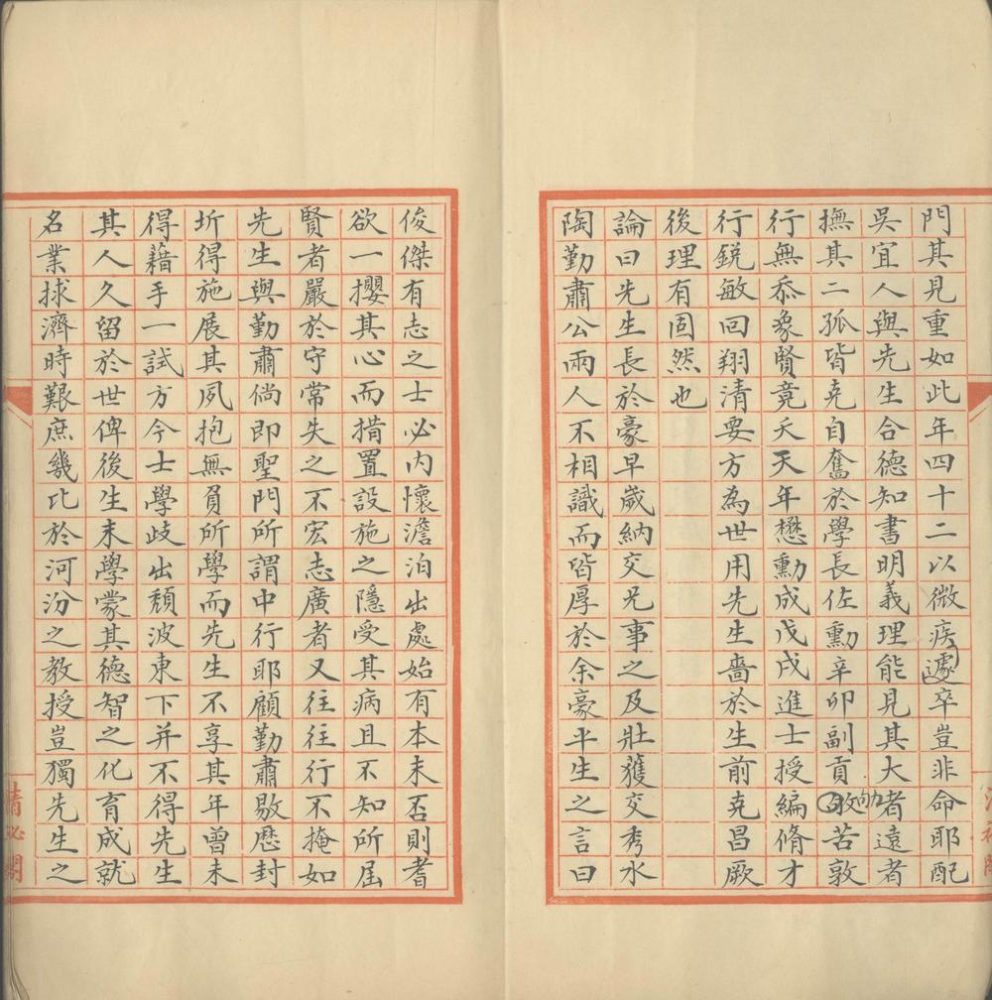 門其見重如此年四十二以微疾遽卒豈非命耶配
吳宜人與先生合德知書明義理能見其大者遠者
撫其二孤皆克自奮於學長佐勳辛卯副貢敭勛苦敦
行無忝象賢竟夭天年懋勳成戊戌進士授編脩才
行銳敏回翔清要方為世用先生嗇於生前克昌厥
後理有固然也
論曰先生長於豪早歲納交兄事之及壯獲交秀水
陶勤肅公兩人不相識而皆厚於余豪半生之言曰
俊傑有志之士必内懷澹泊出處始有本末否則耆
欲一攖其心而措置設施之隱受其病且不知所屆
賢者嚴於守常失之不宏志廣者又往往行不掩如
先生與勤肅倘即聖門所謂中行耶顧勤肅敭歷封
圻得施展其夙抱無負所學而先生不享其年曾未
得藉手一試方今士學歧出頹波東下并不得先生
其人久留於世俾後生末學蒙其德智之化育成就
名業捄濟時艱庶幾比於河汾之教授豈獨先生之
清祕閣